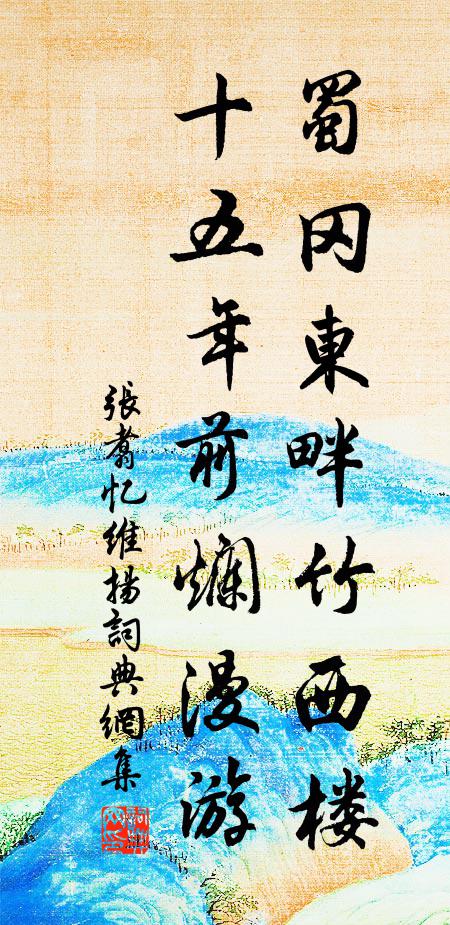 蜀冈東畔竹西楼
十五年前爛漫游
張翥忆維揚詞典網集